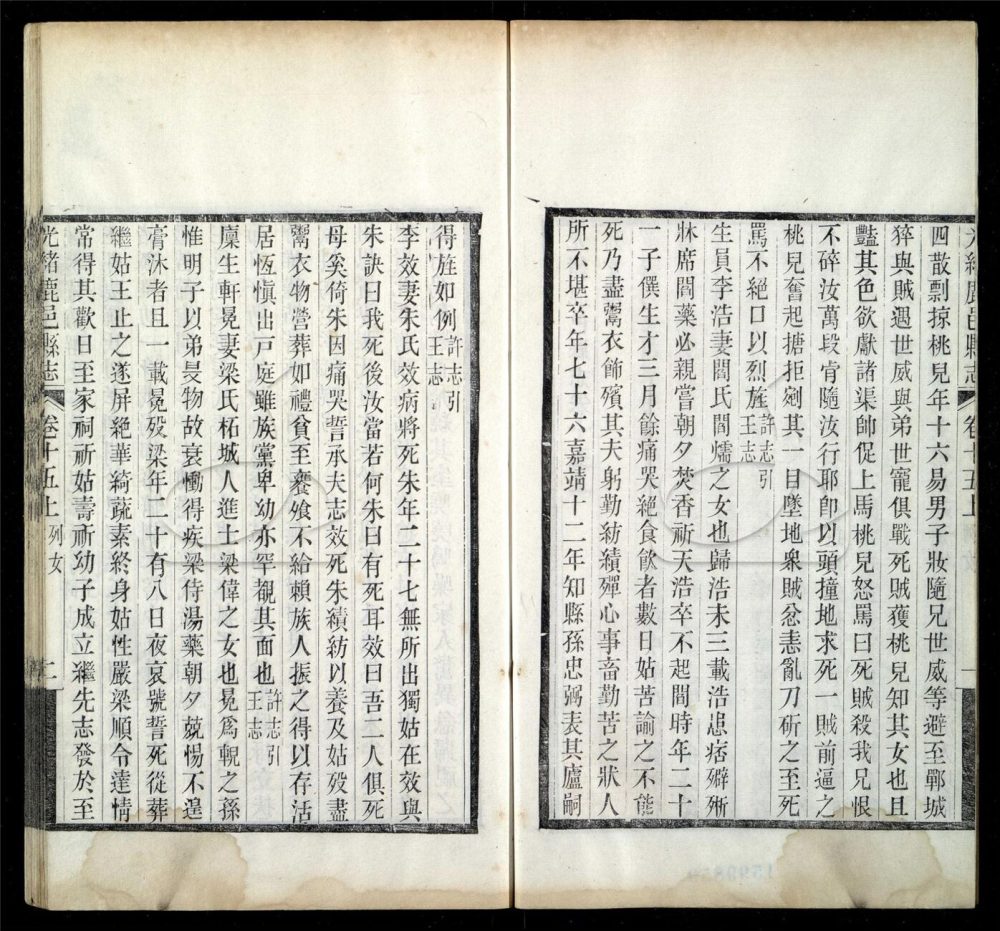 光緒鹿邑縣志 卷十五上 列女 一
四散剽掠桃兒年十六易男子妝隨兄世威等避至鄲城
猝與賊遇世威與弟世寵俱戰死賊獲桃兒知其女也且
豔其色欲獻諸渠帥促上馬桃兒怒罵曰死賊殺我兄恨
不碎汝萬段肯隨汝行耶卽以頭撞地求死一賊前逼之
桃兒奮起搪拒剜其一目墜地衆賊忿恚亂刀斫之至死
罵不絕口以烈旌許志引王志
生員李浩妻閻氏閻燸之女也歸浩未三載浩患痞癖晰
牀席閻藥必親嘗朝夕焚香祈天浩卒不起閻時年二十
一子僎生才三月餘痛哭絕食飲者數日姑苦諭之不能
死乃盡鬻衣飾殯其夫躬勤紡績殫心事畜勤苦之狀人
所不堪卒年七十六嘉靖十二年知縣孫忠弼表其廬嗣
得旌如例許志引王志
李效妻朱氏效病將死朱年二十七無所出獨姑在效與
朱訣曰我死後汝當若何朱曰有死耳效曰吾二人俱死
母奚倚朱因痛哭誓承夫志效死朱績紡以養及姑歿盡
鬻衣物營葬如禮貧至饔飧不給賴族人振之得以存活
居恆愼出戸庭雖族黨卑幼亦罕覯其面也許志引王志
廩生軒晃妻梁氏柘城人進士梁偉之女也晃爲輗之孫
惟明子以弟旻物故哀慟得疾梁侍湯藥朝夕兢惕不遑
膏沐者且一載晃歿梁年二十有八日夜哀號誓死從葬
繼姑王止之遂屏絕華綺蔬素終身姑性嚴梁順令達情
常得其歡日至家祠祈姑壽祈幼子成立繼先志發於至
光緒鹿邑縣志 卷十五上 列女 二